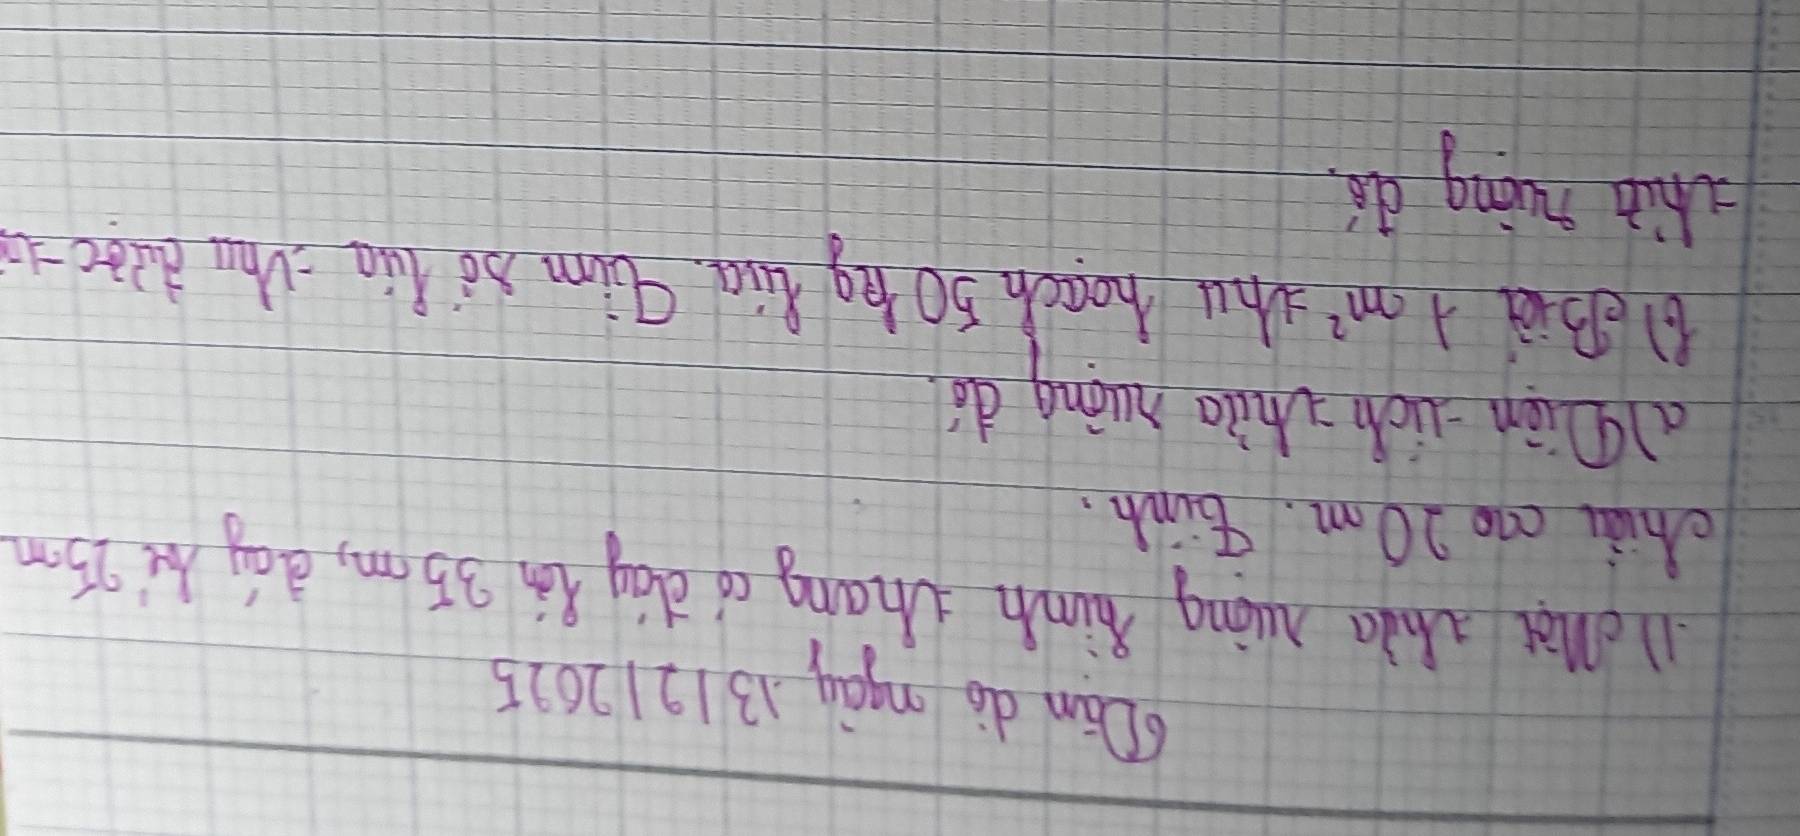 Dặn dò ngày 13/2/2025
1) Một thửa ruộng hình thang có đáy lớn 35 m, đáy bé 25 m
chiều cao 20 m. Tính.
a) Diện tích thửa ruộng đó.
b) Biết 1 m² thu hoạch 50 kg lúa. Tìm số lúa thu được
thửa ruộng đó.